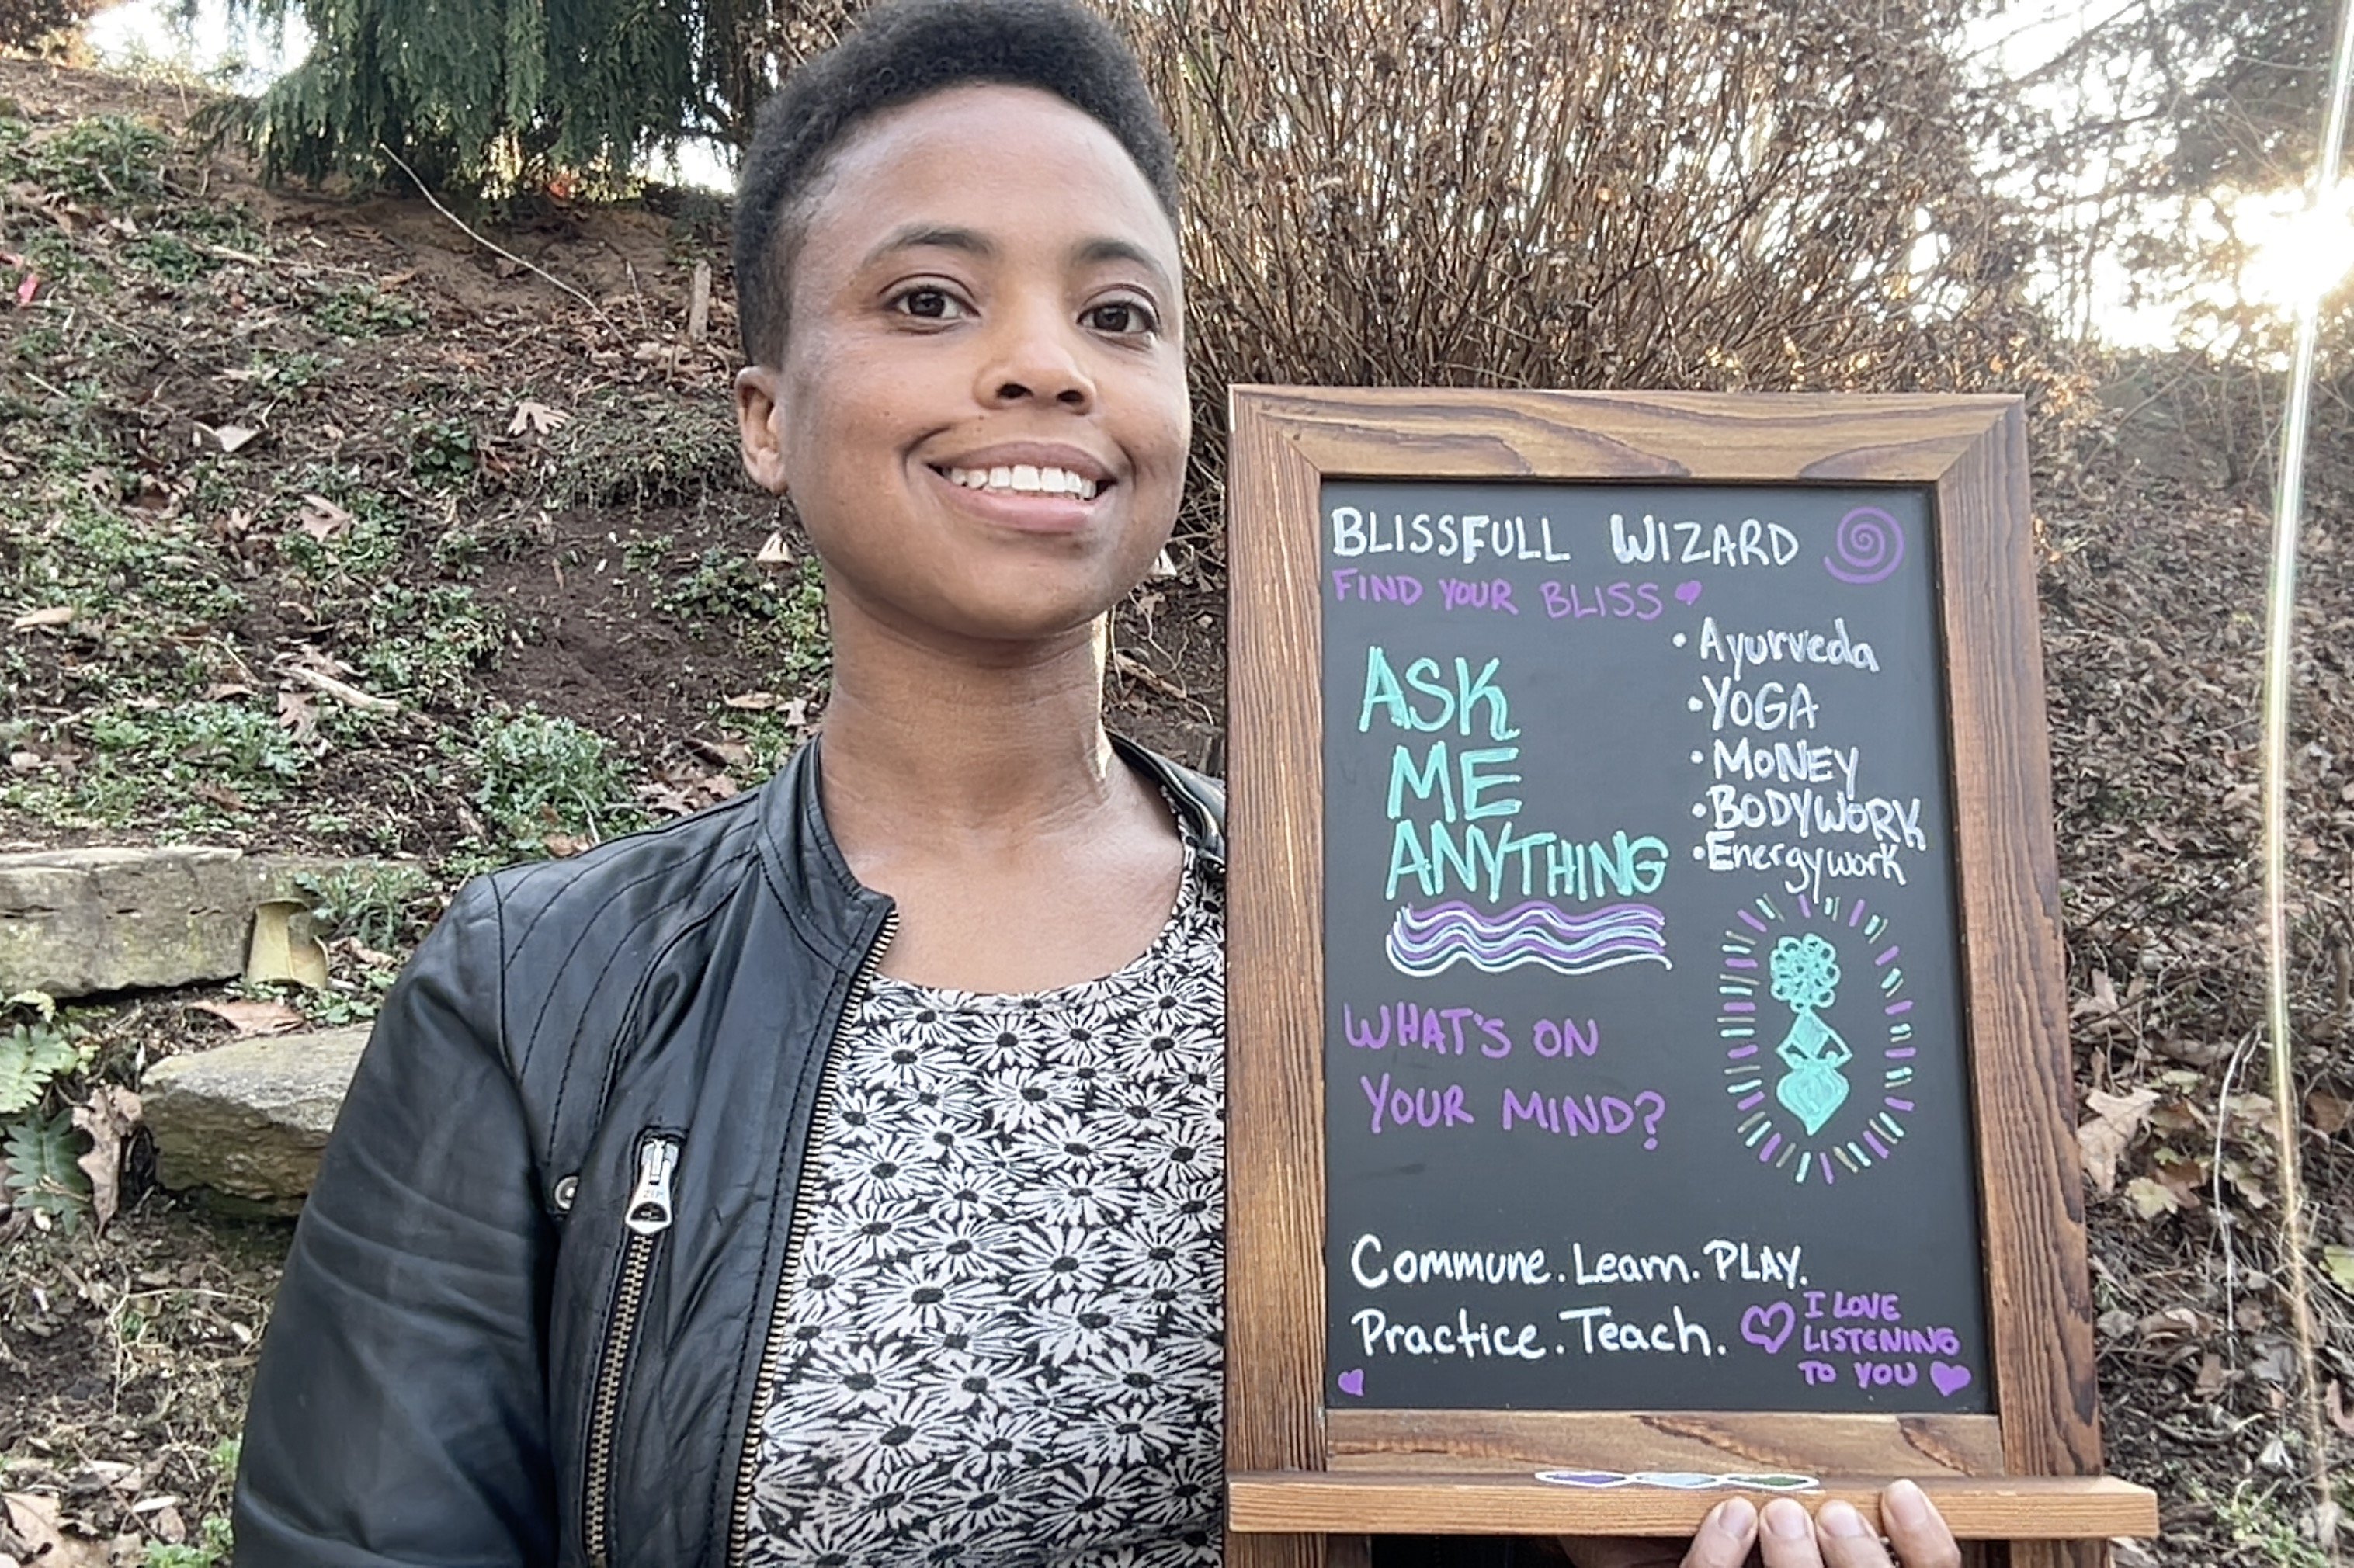 BLISSFULL WIZARD
FIND YOUR BLISS
ASK
ME
ANYTHING
• Ayurveda
• YOGA
• MONEY
• BODYWORK
• Energywork
WHAT'S ON
YOUR MIND?
Commune. Learn. PLAY.
Practice. Teach.
I LOVE
LISTENING
TO YOU